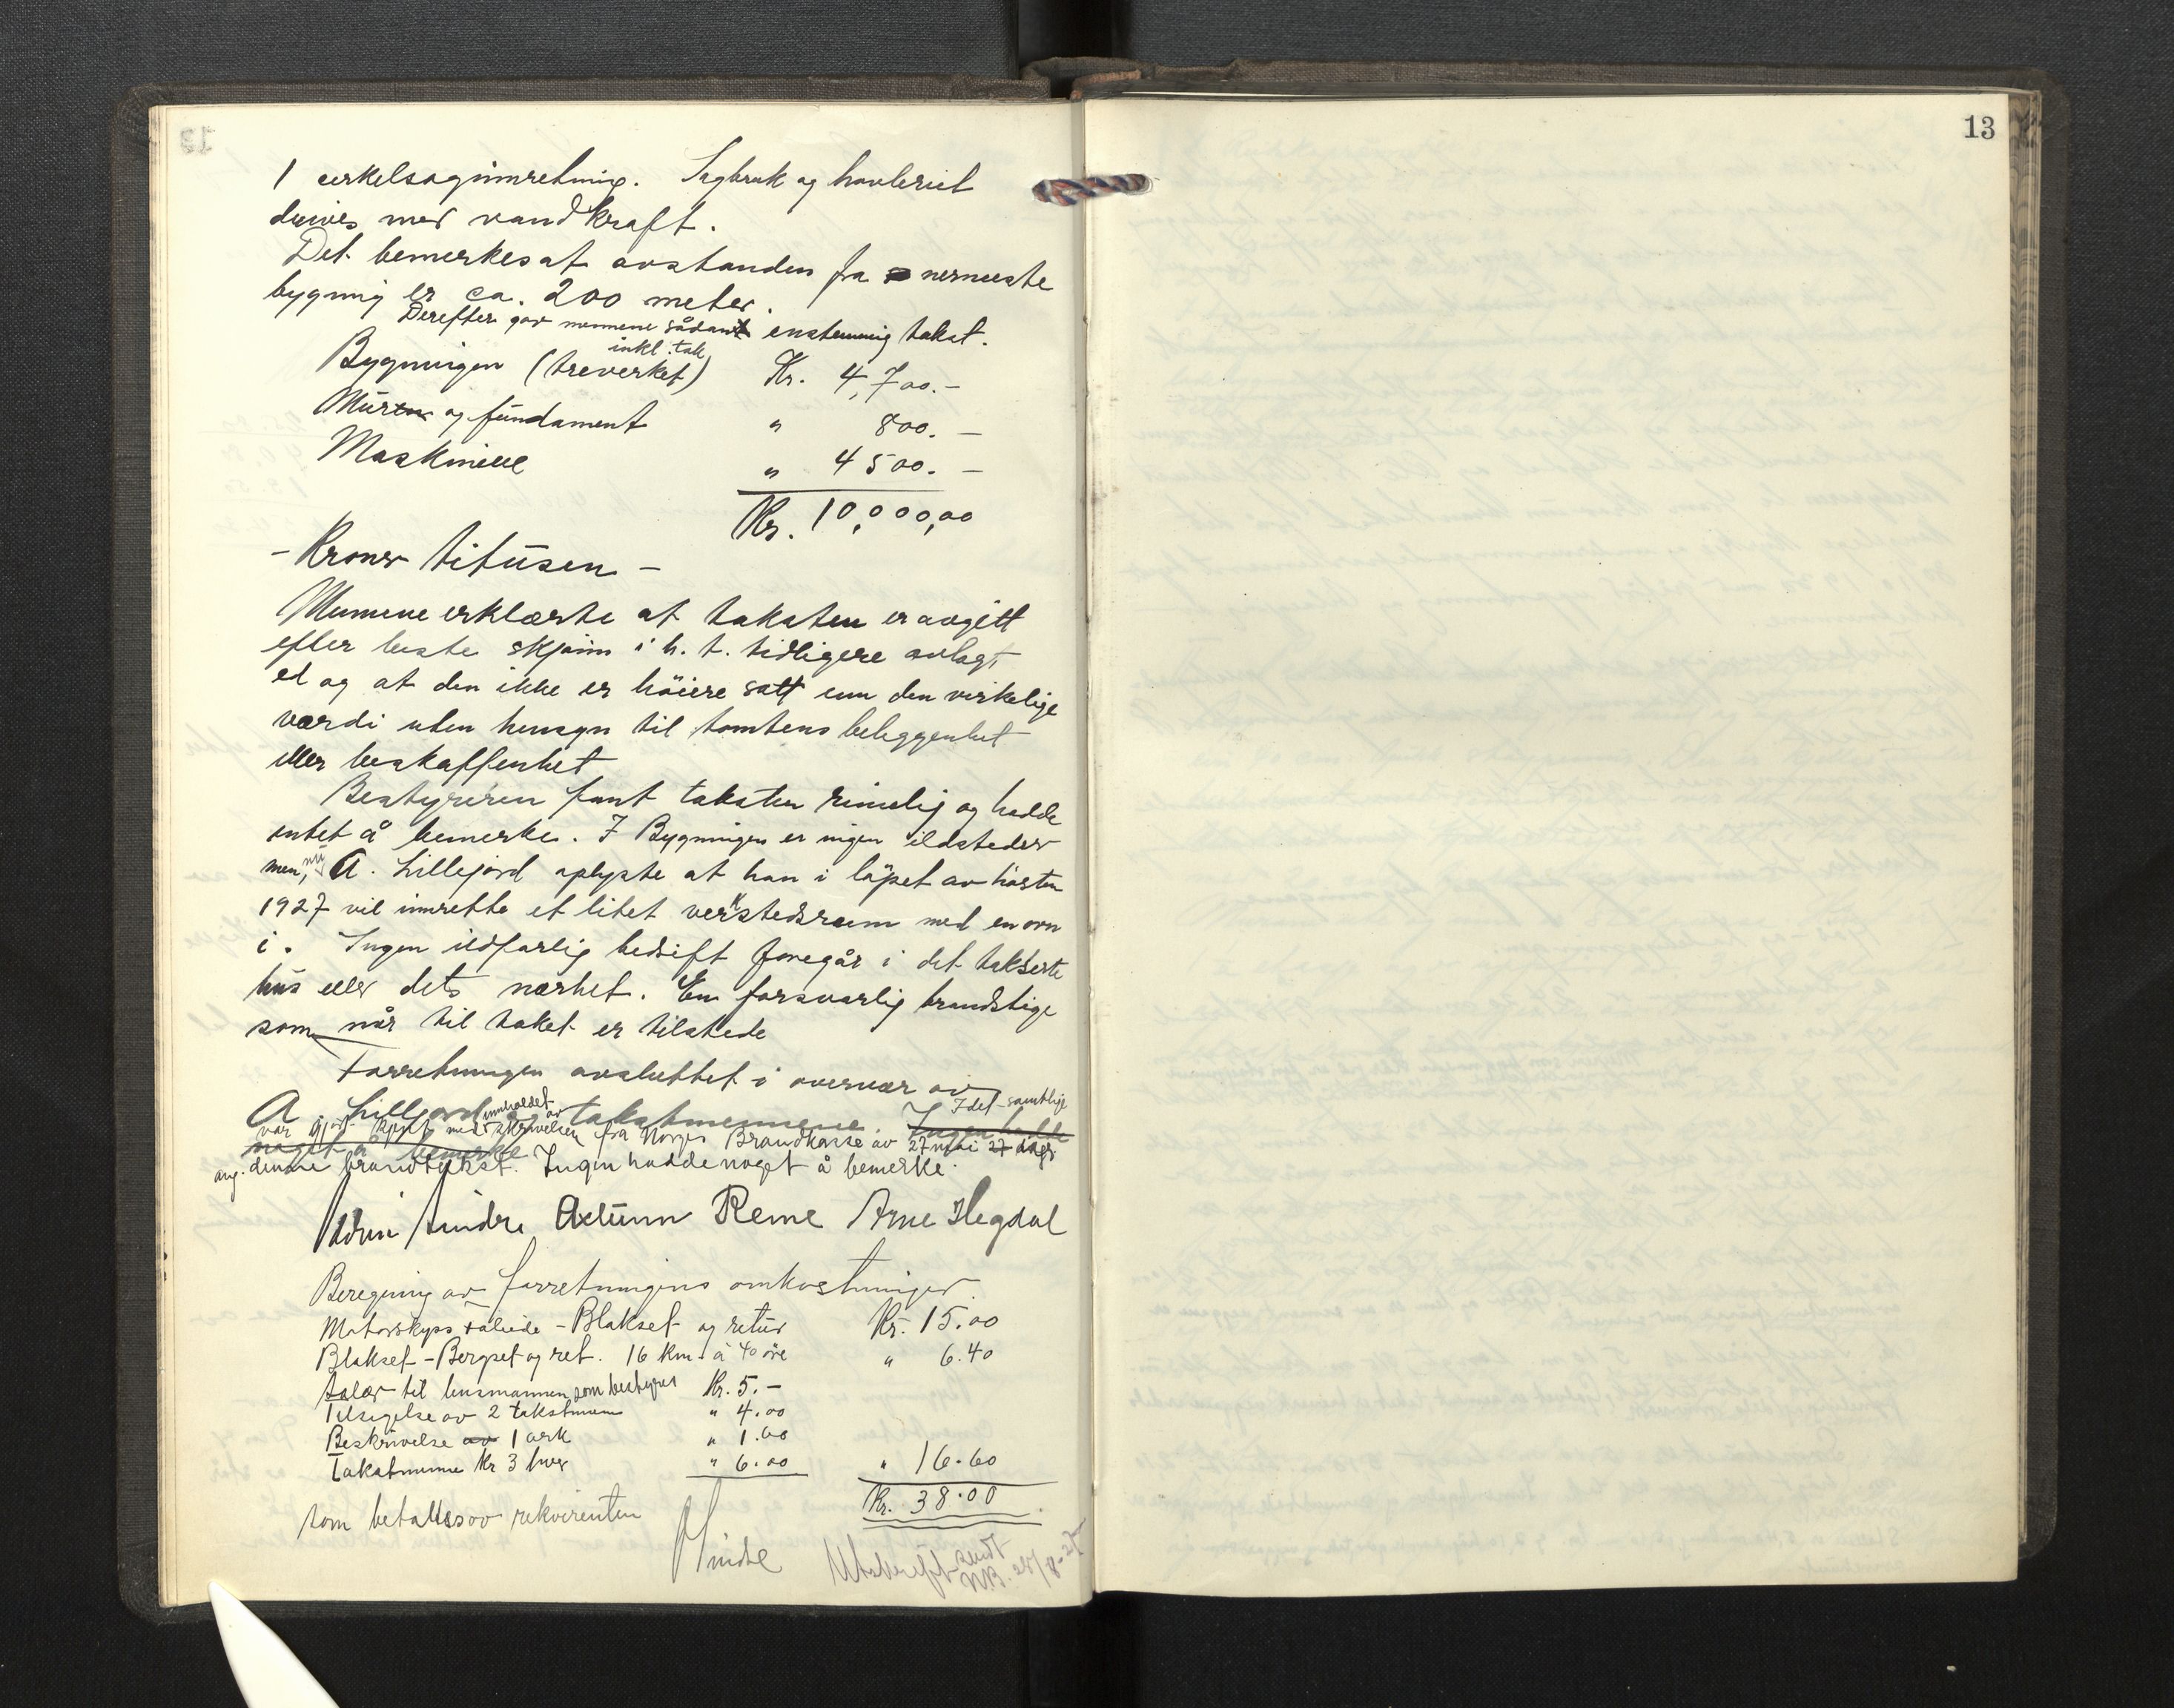 1 cirkelsaginnretning. Sagbruk og høvleriet
drives med vandkraft.
Det bemerkes at avstanden fra nærmeste
bygning er ca. 200 meter.
Derefter gav mennene sådan enstemmig takst.
Bygningen (treverket) inkl. tak Kr. 4,700.-
Muren og fundament " 800.-
Maskinene " 4500.-
Kr. 10,000,00
- Kroner titusen -
Mennene erklærte at taksten er avgitt
efter beste skjønn i h. t. tidligere avlagt
ed og at den ikke er höiere satt enn den virkelige
værdi uten hensyn til tomtens beliggenhet
eller beskaffenhet
Bestyreren fant taksten rimelig og hadde
intet å bemerke. I Bygningen er ingen ildsteder
men, A. Lillejord oplyste at han i löpet av hösten
1927 vil innrette et litet verkstedsrum med en ovn
i. Ingen ildfarlig bedrift foregår i det takserte
hus eller dets nærhet. En forsvarlig brandstige
som når til taket er tilstede
Forretningen avsluttet i overvær av
A. Lillejord og takstmennene. Ingen hadde
noget å bemerke Idet samtlige
var gjort kjent med innholdet av skrivelsen fra Norges Brandkasse av 27 mai 27
ang. denne brandtakst. Ingen hadde noget å bemerke.
Hindre Astunn Reme Arne Hegdal
Beregning av forretningens omkostninger.
Motorskyss - Blakset og retur Kr. 15.00
Blakset - Berget og ret. 16 km. à 40 öre " 6.40
Salær til lensmannen som bestyrer Kr. 5.-
Tilsigelse av 2 takstmenn " 4.00
Beskrivelse av 1 ark " 1.60
Takstmenne Kr 3 hver " 6.00 " 16.60
Kr. 38.00
som betaltes av rekvirenten
Hindre
Utskrift sendt NB. 25/8-27
13